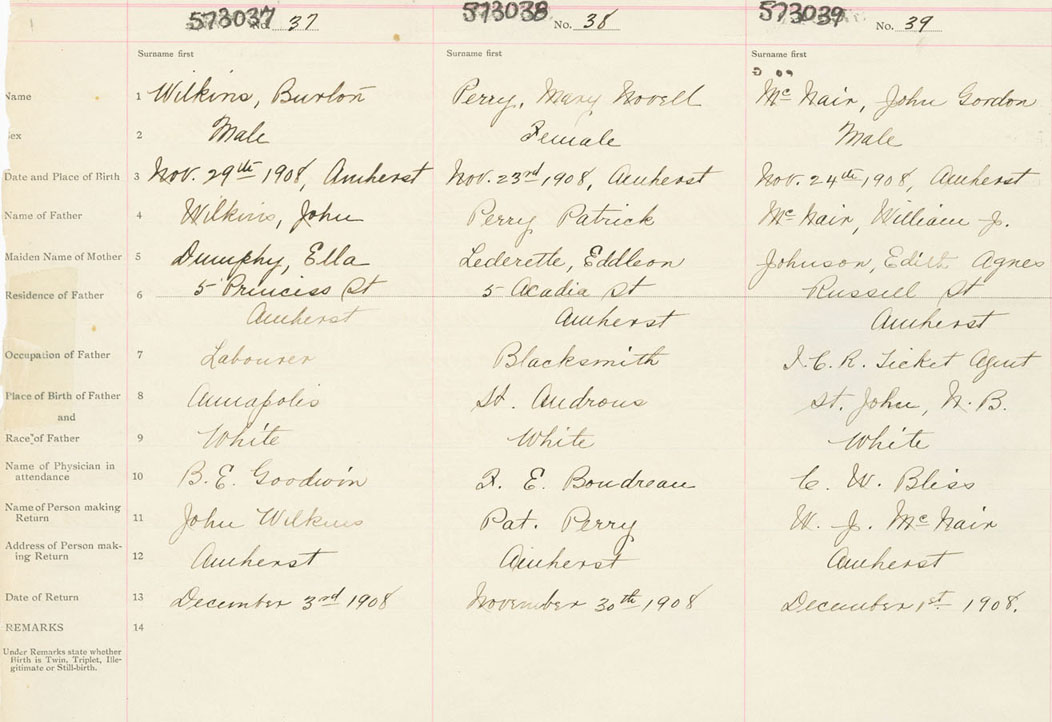 573037 No. 37 573038 No. 38 573039 No. 39
Surname first Surname first Surname first
Name 1 Wilkins, Burlon Perry, Mary Novell Mc Nair, John Gordon
Sex 2 Male Female Male
Date and Place of Birth 3 Nov. 29th 1908, Amherst Nov. 23rd 1908, Amherst Nov. 24th 1908, Amherst
Name of Father 4 Wilkins, John Perry Patrick Mc Nair, William J.
Maiden Name of Mother 5 Dumphy, Ella Lederette, Eddleon Johnson, Edith Agnes
Residence of Father 6 5 Princiss St 5 Acadia St Russell St
Amherst Amherst Amherst
Occupation of Father 7 Labourer Blacksmith I.C.R. Ticket Agent
Place of Birth of Father 8 Annapolis St. Androus St. John, N.B.
and
Race of Father 9 White White White
Name of Physician in
attendance 10 B.E. Goodwin F. E. Boudreau C. W. Bliss
Name of Person making
Return 11 John Wilkins Pat. Perry W. J. Mc Nair
Address of Person mak-
ing Return 12 Amherst Amherst Amherst
Date of Return 13 December 3rd 1908 November 30th 1908 December 1st 1908.
REMARKS 14
Under Remarks state whether
Birth is Twin, Triplet, Ille-
gitimate or Still-birth.